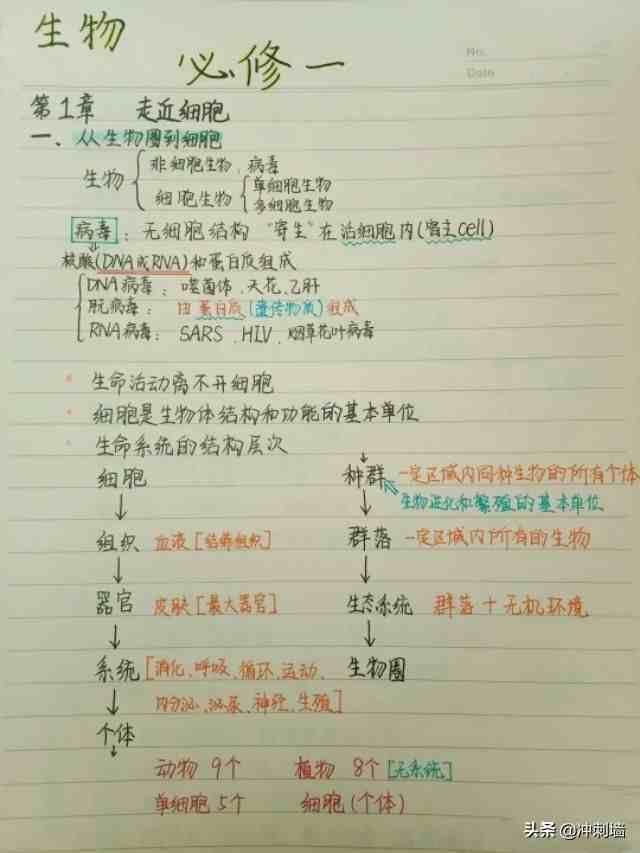 生物
必修一
No.
Date
第1章 走近细胞
一、从生物圈到细胞
生物 { 非细胞生物、病毒
细胞生物 { 单细胞生物
多细胞生物
病毒：无细胞结构 "寄生"在活细胞内(宿主cell)
核酸(DNA或RNA)和蛋白质组成
DNA病毒：噬菌体、天花、乙肝
朊病毒：由蛋白质(遗传物质)组成
RNA病毒：SARS、HIV、烟草花叶病毒
生命活动离不开细胞
细胞是生物体结构和功能的基本单位
生命系统的结构层次
细胞
↓
组织 血液[结缔组织]
↓
器官 皮肤[最大器官]
↓
系统[消化、呼吸、循环、运动、
内分泌、泌尿、神经、生殖]
↓
个体
↓
种群 一定区域内同种生物的所有个体
生物进化和繁殖的基本单位
↓
群落 一定区域内所有的生物
↓
生态系统 群落+无机环境
↓
生物圈
动物 9个 植物 8个[无系统]
单细胞 5个 细胞(个体)
头条@冲刺墙